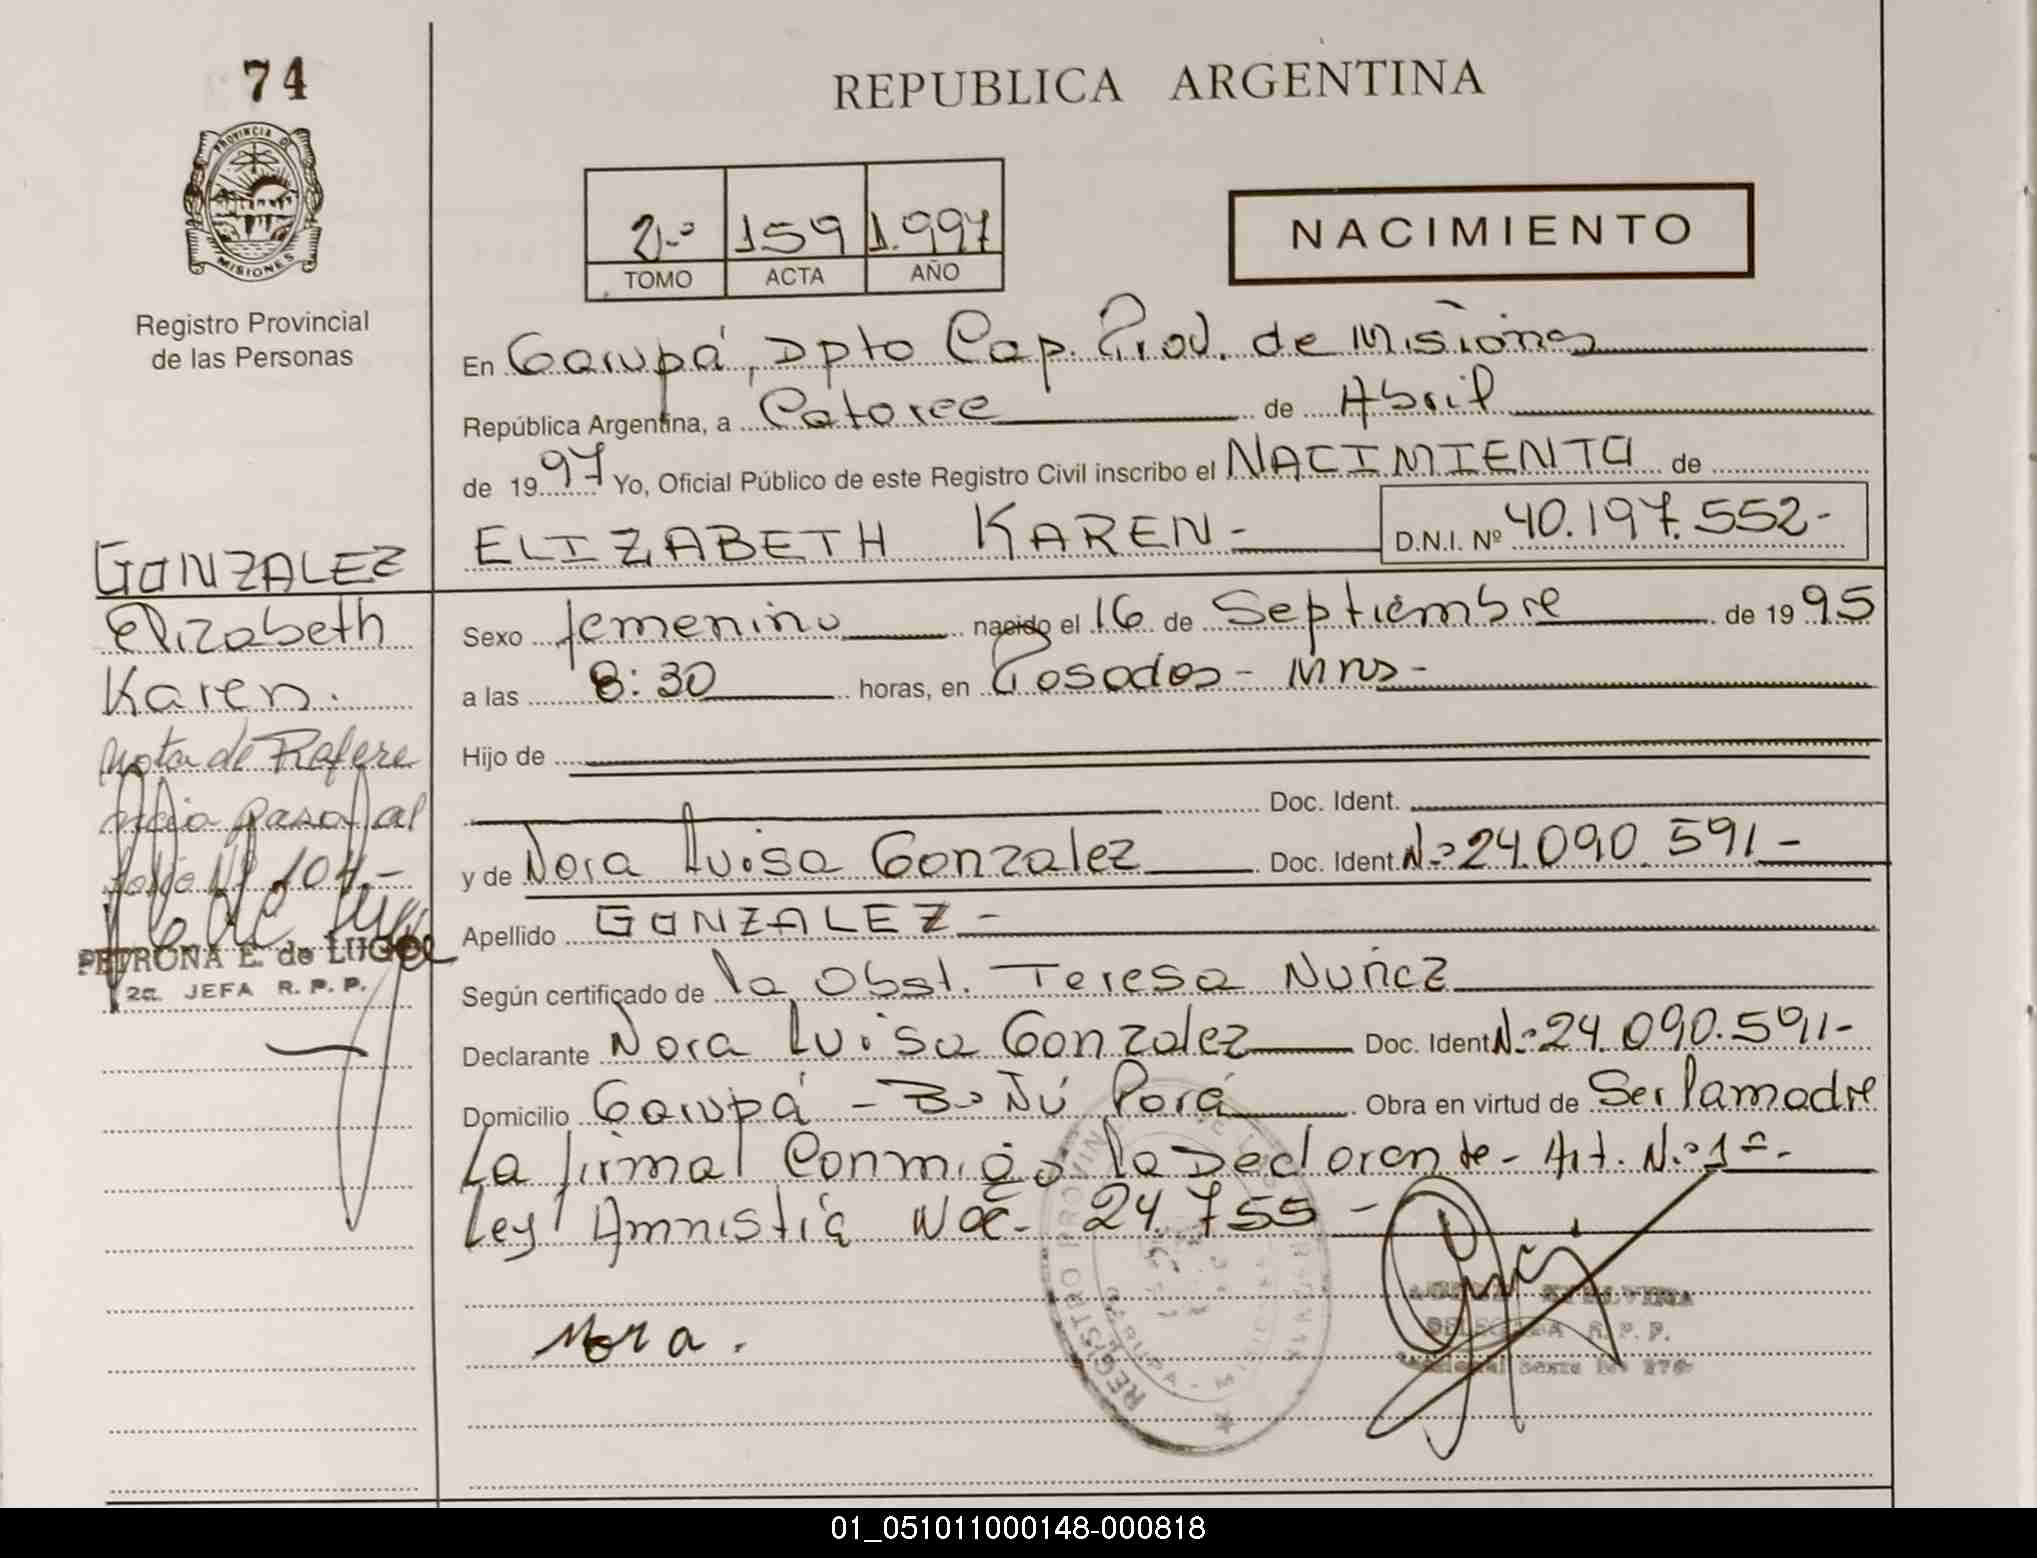 74
REPUBLICA ARGENTINA
PROVINCIA DE
MISIONES
Registro Provincial
de las Personas
2º 159 1.997
TOMO ACTA AÑO
NACIMIENTO
En Garupá, Dpto Cap. Prov. de Misiones
República Argentina, a Catorce de Abril
de 1997 Yo, Oficial Público de este Registro Civil inscribo el NACIMIENTO de
ELIZABETH KAREN- D.N.I. Nº 40.197.552-
GONZALEZ
Elizabeth
Karen.
Nota de Refere
ncia pasa al
folio Nº 104.-
PETRONA E. de LUGO
2a. JEFA R. P. P.
Sexo femenino nacido el 16 de Septiembre de 1995
a las 8:30 horas, en Posadas - Mns -
Hijo de
Doc. Ident.
y de Nora Luisa Gonzalez Doc. Ident. Nº 24.090.591-
Apellido GONZALEZ-
Según certificado de la Obst. Teresa Nuñez
Declarante Nora Luisa Gonzalez Doc. Ident Nº 24.090.591-
Domicilio Garupá - Bº Ñú Porá Obra en virtud de Ser la madre
La firma Conmigo la Declarante - Art. Nº 1º-
Ley Amnistía Nac- 24.755-
Nora.
REGISTRO PROVINCIAL DE LAS
GARUPA - MISIONES
DELEGADA R. P. P.
01_051011000148-000818